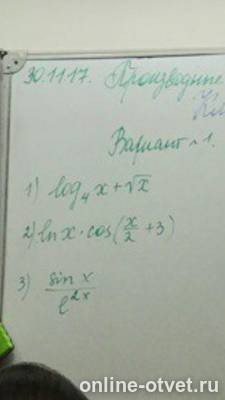 30.11.17. Производные
Вариант 1.
1) log₄x+√x
2) ln x · cos(x/2 +3)
3) sin x / e^2x
online-otvet.ru